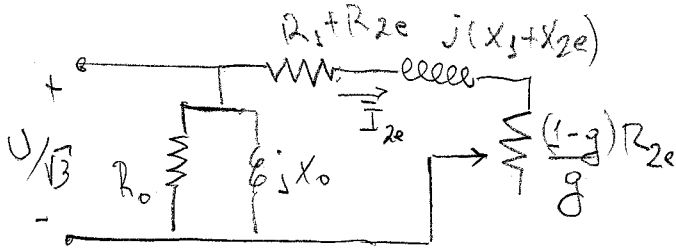 R₁+R₂e j(X₁+X₂e)
+
I₂e
U/√3
R₀
jX₀
(1-g)R₂e
g
-